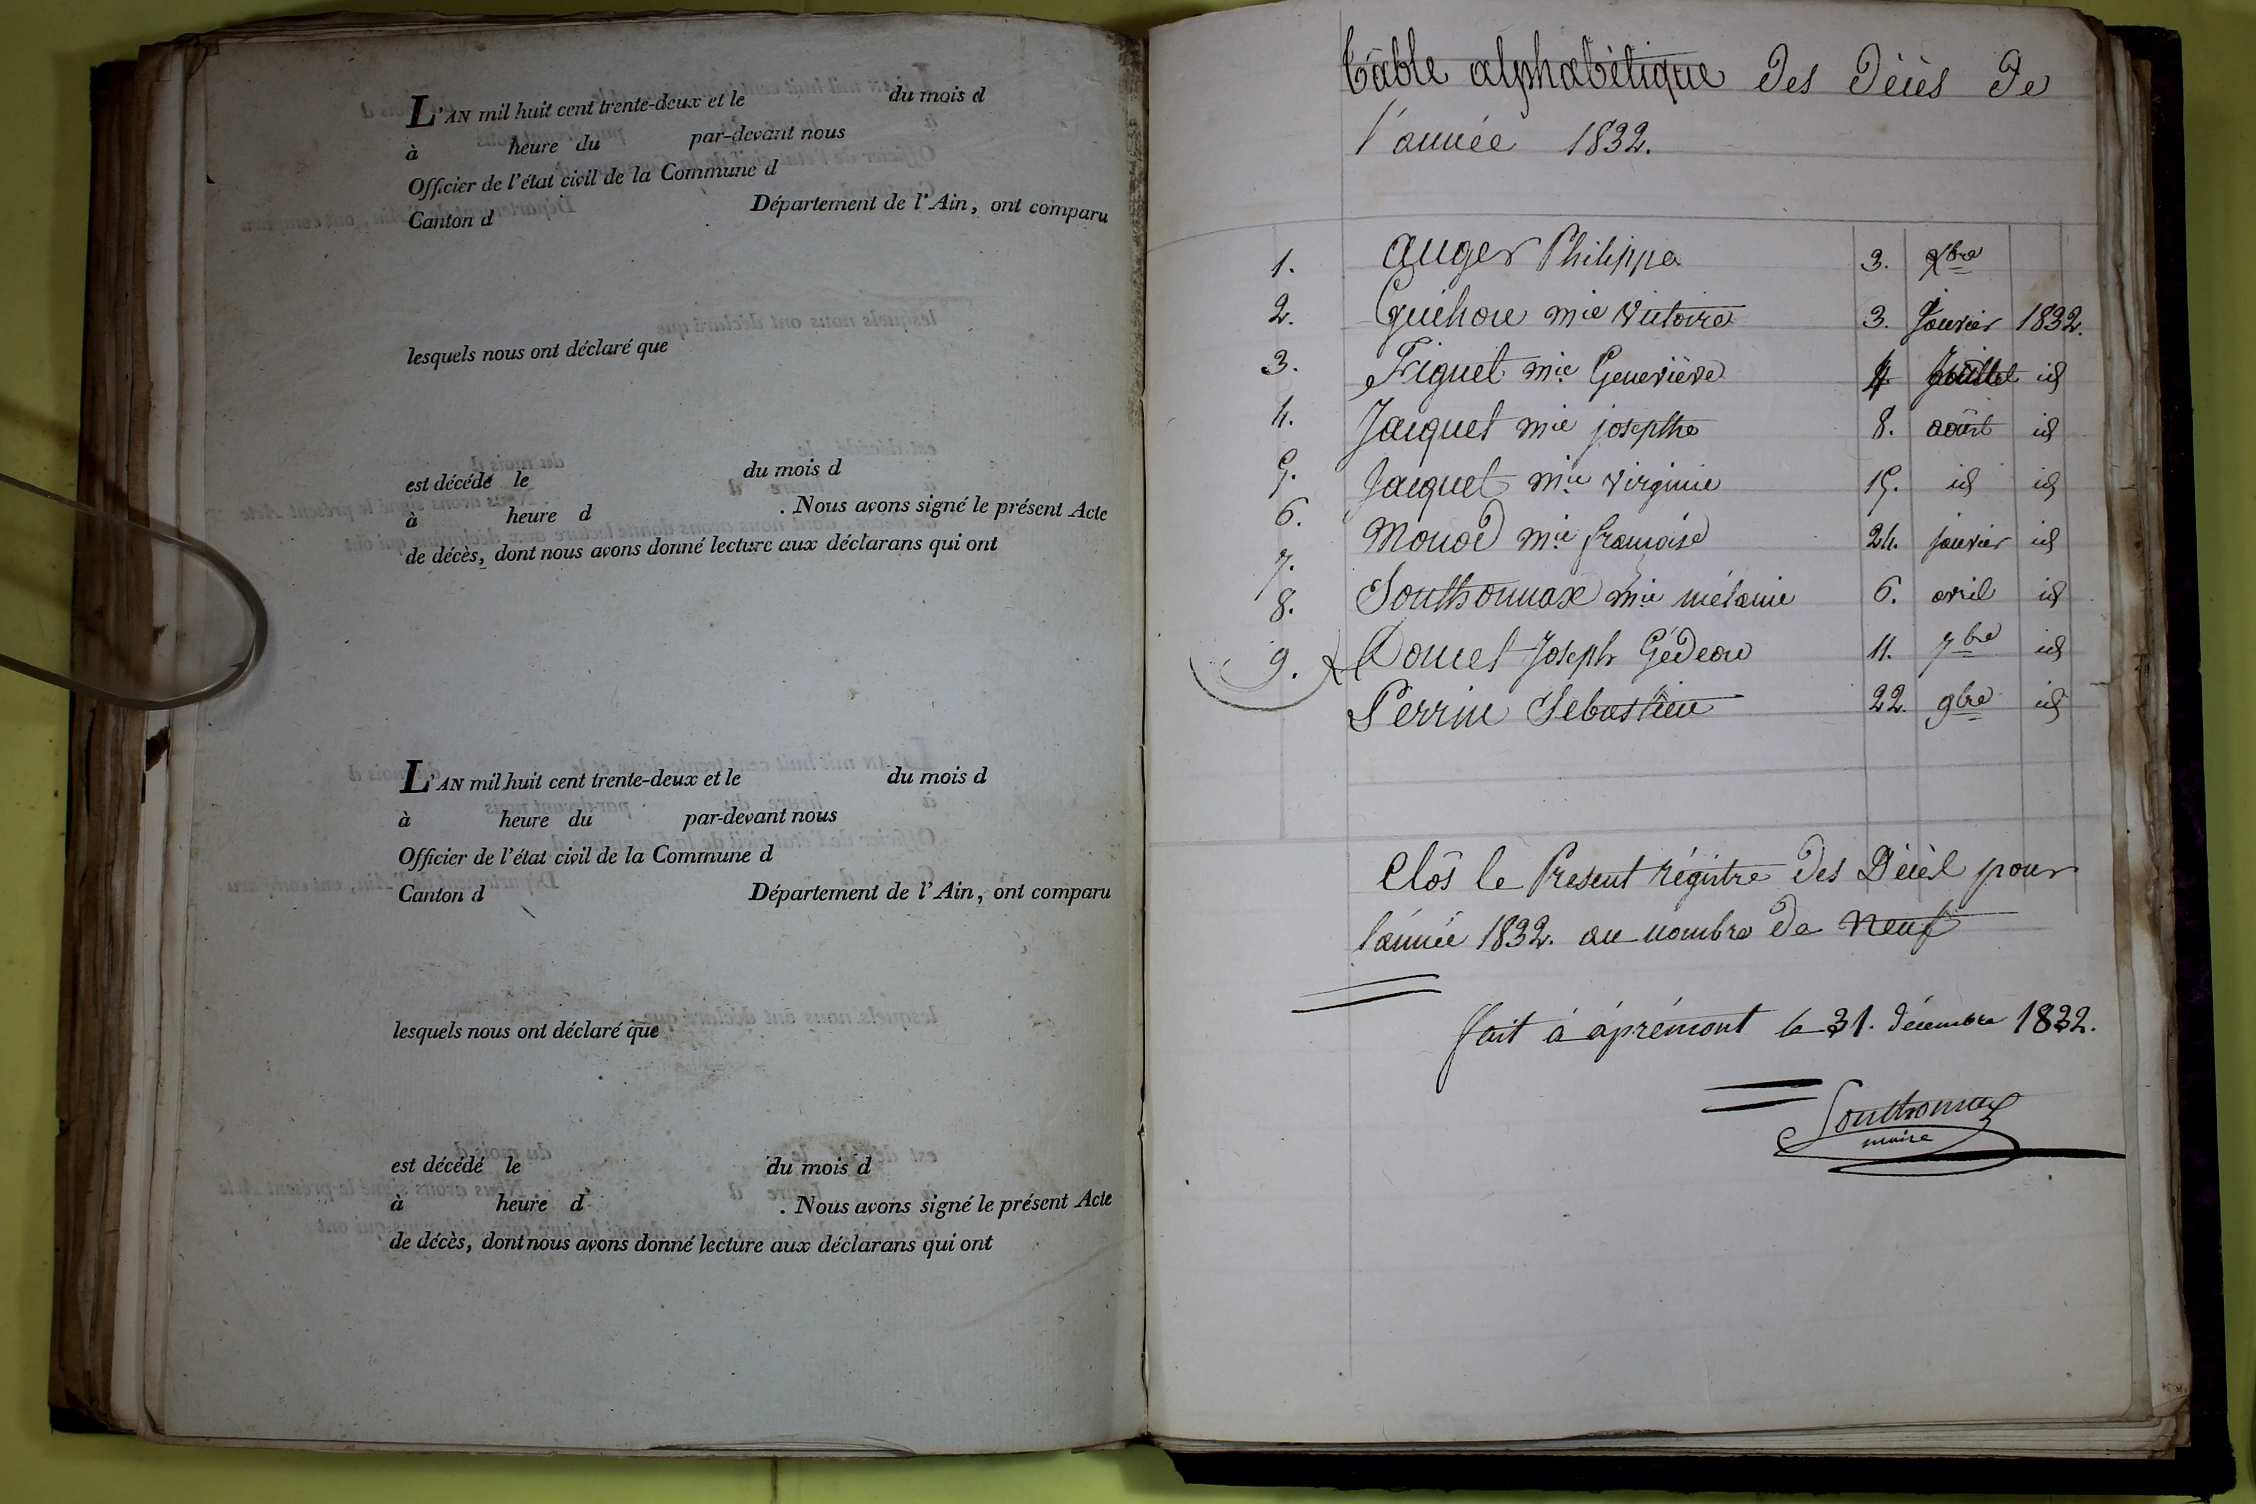 L'AN mil huit cent trente-deux et le du mois d
à heure du par-devant nous
Officier de l'état civil de la Commune d
Canton d Département de l'Ain, ont comparu
lesquels nous ont déclaré que
est décédé le du mois d
à heure d . Nous avons signé le présent Acte
de décès, dont nous avons donné lecture aux déclarans qui ont
L'AN mil huit cent trente-deux et le du mois d
à heure du par-devant nous
Officier de l'état civil de la Commune d
Canton d Département de l'Ain, ont comparu
lesquels nous ont déclaré que
est décédé le du mois d
à heure d . Nous avons signé le présent Acte
de décès, dont nous avons donné lecture aux déclarans qui ont
Table alphabétique des décès de
l'année 1832.
1. Auger Philippe 3. Xbre
2. mie victoire 3. Janvier 1832.
3. mie Geneviève 4 Juillet id
4. Jacquet mie josephe 8. août id
5. Jacquet mie virginie 15. id id
6. Monod mie françoise 24. janvier id
7.
8. Southonnax mie mélanie 6. avril id
9. Doucet Joseph Gédeon 11. 7bre id
Perrin Sebastien 22. 9bre id
Clôs le Present régistre des Décès pour
l'année 1832. au nombre de Neuf
fait à àprémont le 31. décembre 1832.
Southonnax
maire